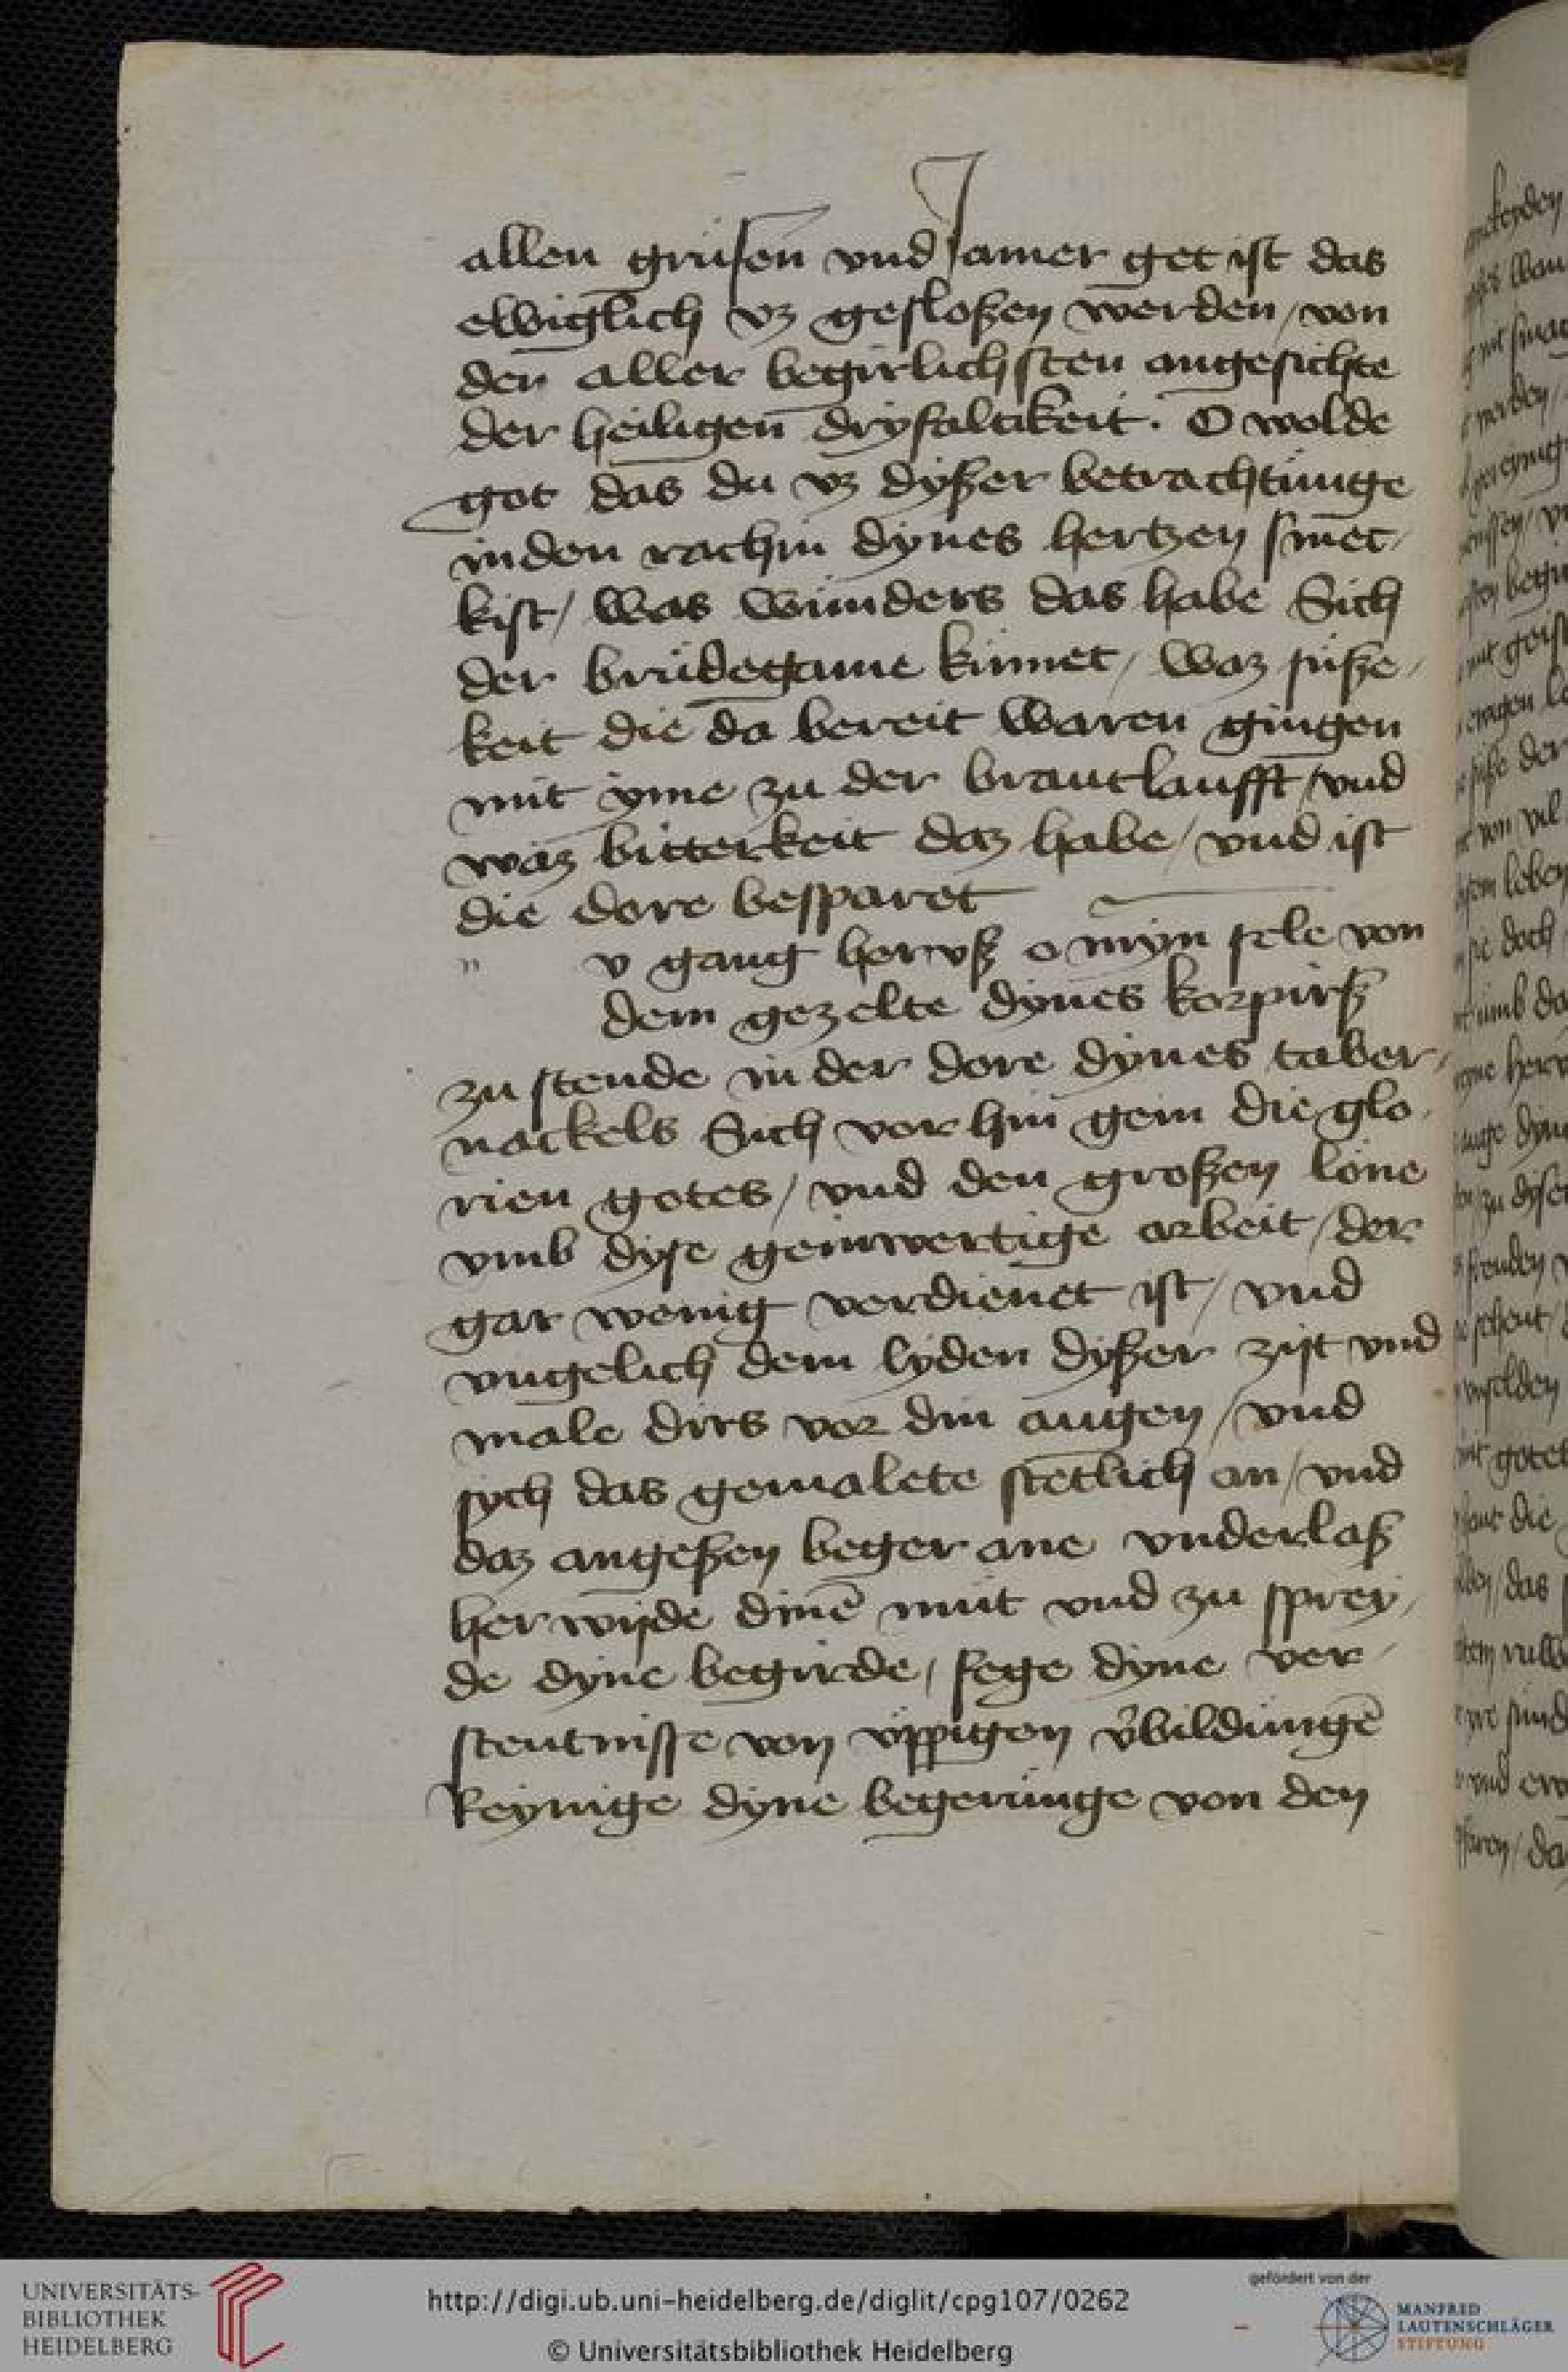 allen grüsen vnd Jamer get ist das
ewiglich vz gesloßen werden / von
den aller begirlichsten angesichte
der heiligen dryfaltikeit . O wolde
got das du vz dyßer betrachtunge
in den rachin dynes hertzen smec
kist / was wunders das habe Sich
der brüdegame kümet / waz süße
keit die da bereit waren gingen
mit yme zu der brautlaufft / vnd
waz bitterkeit daz habe / vnd ist
die dore besparet
n v gang hervß o myn sele von
dem gezelte dynes korpirß
zu stende in der dore dynes taber
nackels Sich vor hin gein die glo
rien gotes / vnd den großen lone
vmb dyse geinwertige arbeit / der
gar wenig verdienet ist / vnd
vngelich dem lyden dyßer zijt vnd
male dirs vor din augen / vnd
sych das gemalete stetlich an / vnd
daz angeßen beger ane vnderlaß
her wijde dinē müt vnd zu sprey
de dyne begirde / fege dyne ver
stentnisse von üppigen v̉bildungē
Reynige dyne begerunge von den
UNIVERSITÄTS-
BIBLIOTHEK
HEIDELBERG
http://digi.ub.uni-heidelberg.de/diglit/cpg107/0262
© Universitätsbibliothek Heidelberg
gefördert von der
MANFRED
LAUTENSCHLÄGER
STIFTUNG